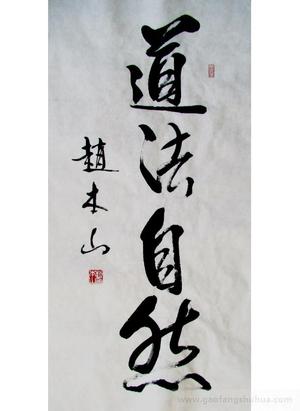 道法自然
趙本山
www.gaofangshuhua.com